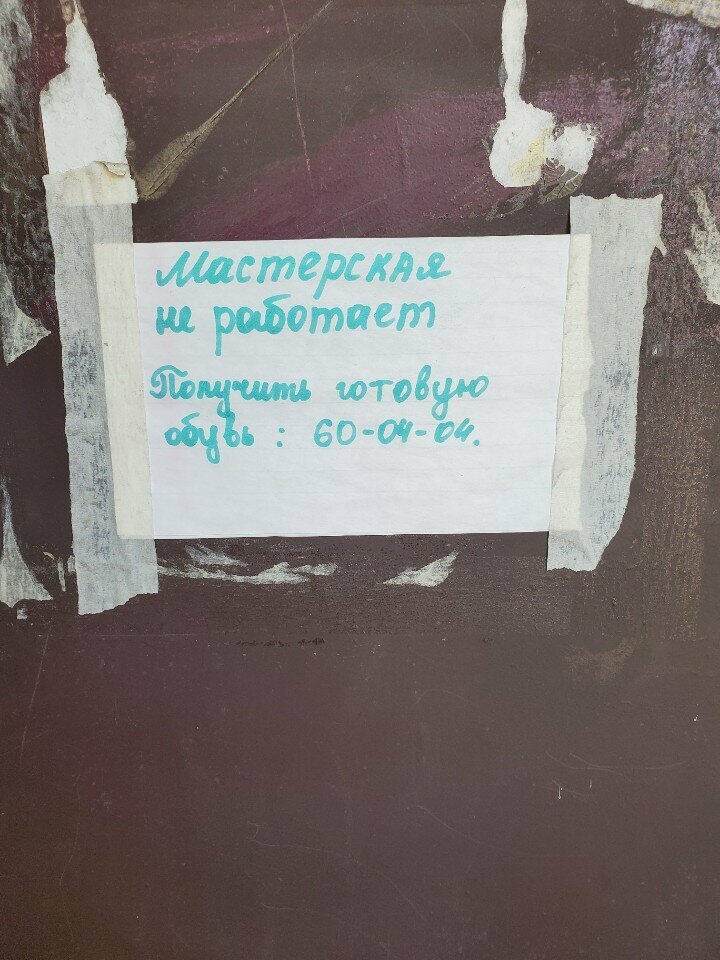 Мастерская
не работает
Получить готовую
обувь : 60-04-04.